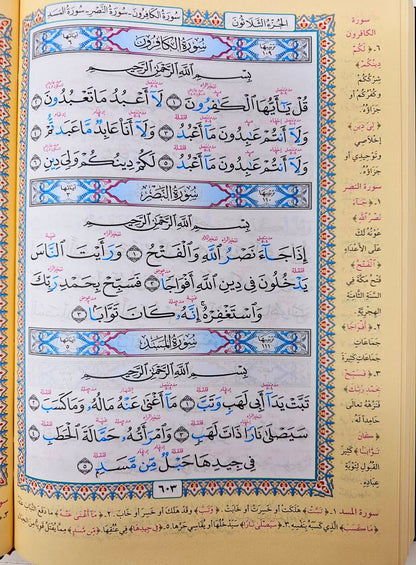 سورة الكافرون - سورة النصر - سورة المسد
الجزء الثلاثون
سورة الكافرون
بسم الله الرحمن الرحيم
قُلْ يَٰٓأَيُّهَا ٱلْكَٰفِرُونَ ١ لَآ أَعْبُدُ مَا تَعْبُدُونَ ٢
وَلَآ أَنتُمْ عَٰبِدُونَ مَآ أَعْبُدُ ٣ وَلَآ أَنَا۠ عَابِدٌ مَّا عَبَدتُّمْ ٤
وَلَآ أَنتُمْ عَٰبِدُونَ مَآ أَعْبُدُ ٥ لَكُمْ دِينُكُمْ وَلِىَ دِينِ ٦
سورة النصر
بسم الله الرحمن الرحيم
إِذَا جَآءَ نَصْرُ ٱللَّهِ وَٱلْفَتْحُ ١ وَرَأَيْتَ ٱلنَّاسَ
يَدْخُلُونَ فِى دِينِ ٱللَّهِ أَفْوَاجًا ٢ فَسَبِّحْ بِحَمْدِ رَبِّكَ
وَٱسْتَغْفِرْهُ إِنَّهُۥ كَانَ تَوَّابًۢا ٣
سورة المسد
بسم الله الرحمن الرحيم
تَبَّتْ يَدَآ أَبِى لَهَبٍ وَتَبَّ ١ مَآ أَغْنَىٰ عَنْهُ مَالُهُۥ وَمَا كَسَبَ ٢
سَيَصْلَىٰ نَارًا ذَاتَ لَهَبٍ ٣ وَٱمْرَأَتُهُۥ حَمَّالَةَ ٱلْحَطَبِ ٤
فِى جِيدِهَا حَبْلٌ مِّن مَّسَدٍۭ ٥
٦٠٣
سورة
الكافرون
٦. ﴿لَكُمْ
دِينُكُمْ﴾
شِرْكُكُمْ
وكُفْرُكُمْ أو
جزاؤُهُ.
﴿لِيَ دِينِ﴾
إخلاصي
وتوحيدي أو
جزاؤُهُ.
سورة النصر
١. ﴿جَاءَ
نَصْرُ اللَّهِ﴾
عَوْنُهُ لك
على الأعداءِ
﴿الْفَتْحُ﴾
فتح مكة في
السَّنَةِ الثامنة
الهجرية.
٢. ﴿أَفْوَاجًا﴾
جماعات
جماعات كثيرة
٣. ﴿فَسَبِّحْ
بِحَمْدِ رَبِّكَ﴾
فنزهه تعالى
حامدا له.
﴿كَانَ
تَوَّابًا﴾ كثير
القبول لتوبة
عباده.
سورة المسد ١. ﴿تَبَّتْ﴾ هلكت أو خسرت أو خابت. ﴿وَتَبَّ﴾ وقد هلك أو خسر أو خاب. ٢. ﴿مَا أَغْنَى عَنْهُ﴾ ما دفع التباب عنه
﴿مَا كَسَبَ﴾ الذي كسبه بنفسه. ٣. ﴿سَيَصْلَى نَارًا﴾ سيدخلها أو يقاسي حرها. ٥. ﴿فِي جِيدِهَا﴾ في عنقها.